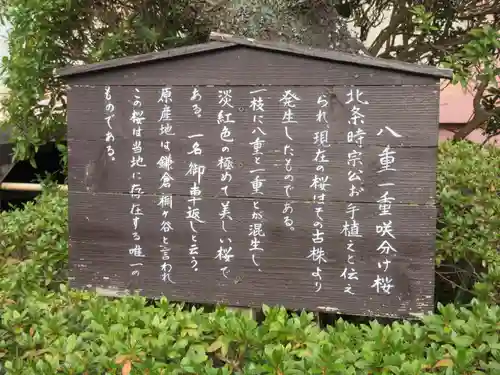 八重一重咲分け桜
北条時宗公お手植えと伝え
られ現在の桜はその古株より
発生したものである。
一枝に八重と一重とが混生し、
淡紅色の極めて美しい桜で
ある。一名御車返しと云う。
原産地は鎌倉桐ヶ谷と言われ
この桜は当地に存在する唯一の
ものである。